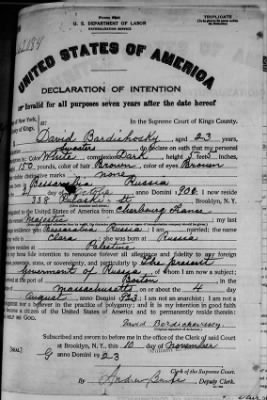 TRIPLICATE
U. S. DEPARTMENT OF LABOR
NATURALIZATION SERVICE
UNITED STATES OF AMERICA
DECLARATION OF INTENTION
Invalid for all purposes seven years after the date hereof
of New York,
of Kings,
In the Supreme Court of Kings County.
David aged 23 years,
Sweaters do declare on oath that my personal
White complexion Dark height 5 feet inches,
150 pounds, color of hair Brown color of eyes Brown
distinctive marks none
Bessarabia Russia
day of anno Domini 1900; I now reside
338 Pulaski St Brooklyn, N. Y.
to the United States of America from Cherbourg France
Majestic my last
residence was Bessarabia Russia I am married; the name
wife is Clara she was born at Russia
resides at Palestine
bona fide intention to renounce forever all allegiance and fidelity to any foreign
state, or sovereignty, and particularly to The present
Government of Russia of whom I am now a subject;
at the port of Boston in the
Massachusetts on or about the 4 day
August anno Domini 1923; I am not an anarchist; I am not a
nor a believer in the practice of polygamy; and it is my intention in good faith
to become a citizen of the United States of America and to permanently reside therein:
HELP ME GOD.
David
Subscribed and sworn to before me in the office of the Clerk of said Court
at Brooklyn, N. Y., this 10 day of November
anno Domini 1923
Clerk of the Supreme Court.
By Deputy Clerk.